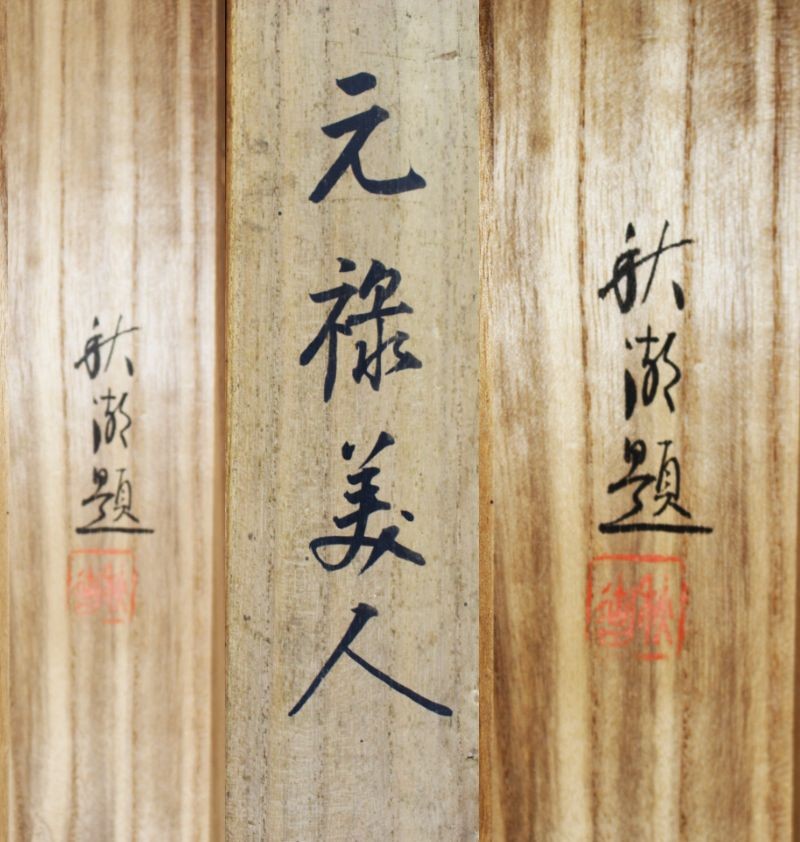 秋湖題
元禄美人
秋湖題